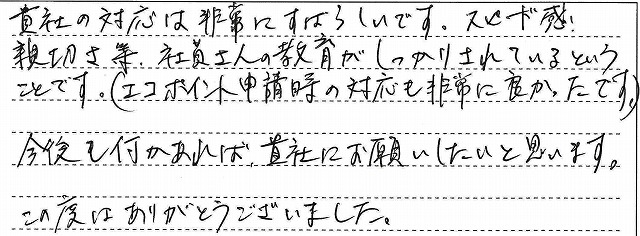 貴社の対応は非常にすばらしいです。スピード感!
親切さ等、社員さんの教育がしっかりされているという
ことです。(エコポイント申請時の対応も非常に良かったです。)
今後も何かあれば、貴社にお願いしたいと思います。
この度はありがとうございました。